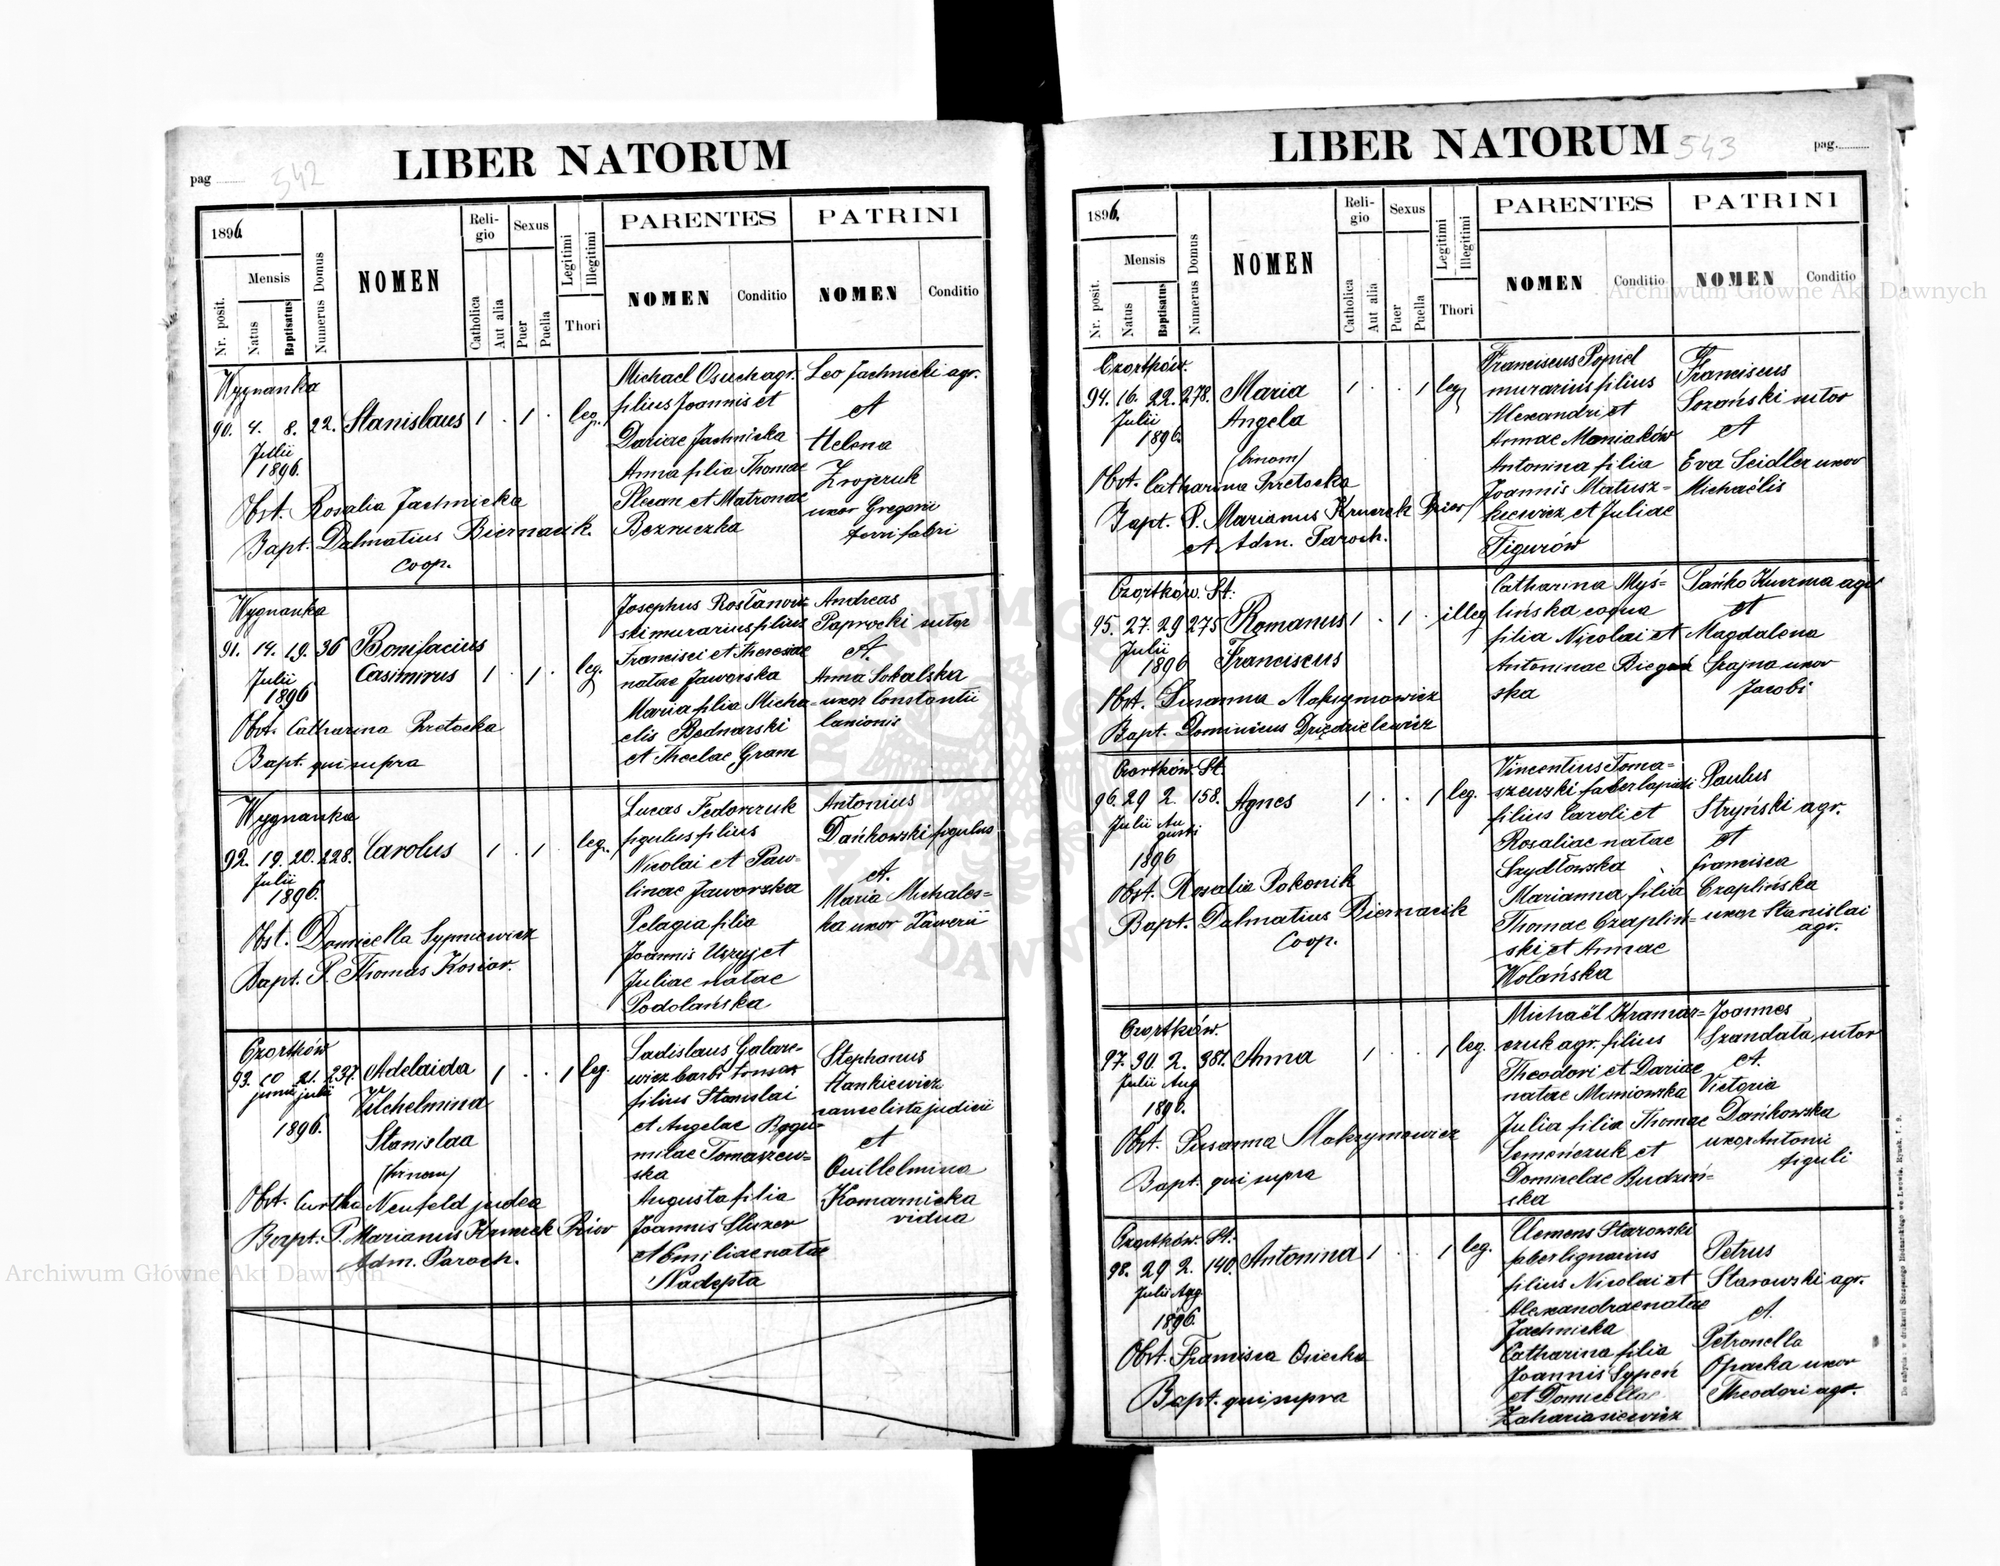 LIBER NATORUM
pag
542
1896
Mensis
Nr. posit.
Natus
Baptisatus
Numerus Domus
NOMEN
Reli-
gio
Catholica
Aut alia
Sexus
Puer
Puella
Legitimi
Illegitimi
Thori
PARENTES
NOMEN
Conditio
PATRINI
NOMEN
Conditio
Wygnanka
90. 4. 8. 22. Stanislaus 1 . 1 . leg.
Julii
1896.
Obst. Rosalia Jachnicka
Bapt. Dalmatius Biernacik.
Coop.
Michael Osuch agr.
filius Joannis et
Dariae Jachnicka
Anna filia Thomae
Plecan et Matronae
Bezruczka
Leo Jachnicki agr.
et
Helena
uxor Gregorii
ferri fabri
Wygnanka
91. 14. 19. 36 Bonifacius
Casimirus 1 . 1 . leg.
Julii
1896
Obst. Catharina Pretocka
Bapt. qui supra
Josephus Rostanow-
ski murarius filius
Francisci et Theresiae
natae Jaworska
Maria filia Micha-
elis Bednarski
et Theclae Gram
Andreas
Paprocki sutor
et.
Anna Sokalska
uxor Constantii
lanionis
Wygnanka
92. 19. 20. 228. Carolus 1 . 1 . leg.
Julii
1896.
Obst. Domicella Sypniewicz
Bapt. P. Thomas Kosior.
Lucas Fedorczuk
figulus filius
Nicolai et Paw-
linae Jaworska
Pelagia filia
Joannis Uszyj et
Juliae natae
Podolańska
Antonius
Dańkowski figulus
et.
Maria Michales-
ka uxor Xawerii
Czortków
93. 20 21. 237. Adelaida 1 . . 1 leg.
junii julii
Vilchelmina
1896.
Stanislaa
(trinom)
Obst. Neufeld judea
Bapt. P. Marianus Kruczek Prior
Adm. Paroch.
Ladislaus Galare-
wicz barbi tonsor
filius Stanislai
et Angelae Bogu-
milae Tomaszew-
ska
Augusta filia
Joannis Sluzer
et Emiliae natae
Nadepta
Stephanus
Hankiewicz
cancelista judicii
et
Quillelmina
Komarnicka
vidua
LIBER NATORUM
543
pag.
1896.
Mensis
Nr. posit.
Natus
Baptisatus
Numerus Domus
NOMEN
Reli-
gio
Catholica
Aut alia
Sexus
Puer
Puella
Legitimi
Illegitimi
Thori
PARENTES
NOMEN
Conditio
PATRINI
NOMEN
Conditio
Czortków.
94. 16. 22. 278. Maria 1 . . 1 leg
Julii
Angela
1896.
(binom)
Obst. Catharina Pretocka
Bapt. P. Marianus Kruczek Prior
et Adm. Paroch.
Franciscus Popiel
murarius filius
Alexandri et
Annae Maniaków
Antonina filia
Joannis Matusz-
kiewicz et Juliae
Figurów
Franciscus
Lozański sutor
et
Eva Seidler uxor
Michaëlis
Czortków. St.
95. 27. 29 275 Romanus 1 . 1 . illeg
Julii
1896 Franciscus
Obst. Susanna Maksymowicz
Bapt. Dominicus Dziędzielewicz
Catharina Myś-
lińska coqua
filia Nicolai et
Antoninae Biegań
ska
Pańko Kuzma agr
et
Magdalena
Szajna uxor
Jacobi
Czortków. St.
96. 29 2. 158. Agnes 1 . . 1 leg.
Julii Au
gusti
1896
Obst. Rosalia Pokonik
Bapt. Dalmatius Biernacik
Coop.
Vincentius Toma-
szewski faber lapidi
filius Caroli et
Rosaliae natae
Szydłowska
Marianna filia
Thomae Czaplin-
ski et Annae
Wolańska
Paulus
Stryński agr.
et
Francisca
Czaplińska
uxor Stanislai
agr.
Czortków.
97. 30. 2. 381. Anna 1 . . 1 leg.
Julii Aug
1896.
Obst. Susanna Maksymowicz
Bapt. qui supra
Michaël Kramar-
czuk agr. filius
Theodori et Dariae
natae Maniowska
Julia filia Thomae
Semeńczuk et
Domicelae Budzin-
ska
Joannes
Szandała sutor
et.
Victoria
Dańkowska
uxor Antonii
figuli
Czortków. St.
98. 29 2. 140. Antonina 1 . . 1 leg.
Julii Aug
1896.
Obst. Francisca Osiecka
Bapt. qui supra
Clemens Starowski
faber lignarius
filius Nicolai et
Alexandrae natae
Jachnicka
Catharina filia
Joannis Sypeń
et Domicellae
Zahariasiewicz
Petrus
Starowski agr.
et.
Petronella
Opacka uxor
Theodori agr.
Archiwum Główne Akt Dawnych
Archiwum Główne Akt Dawnych